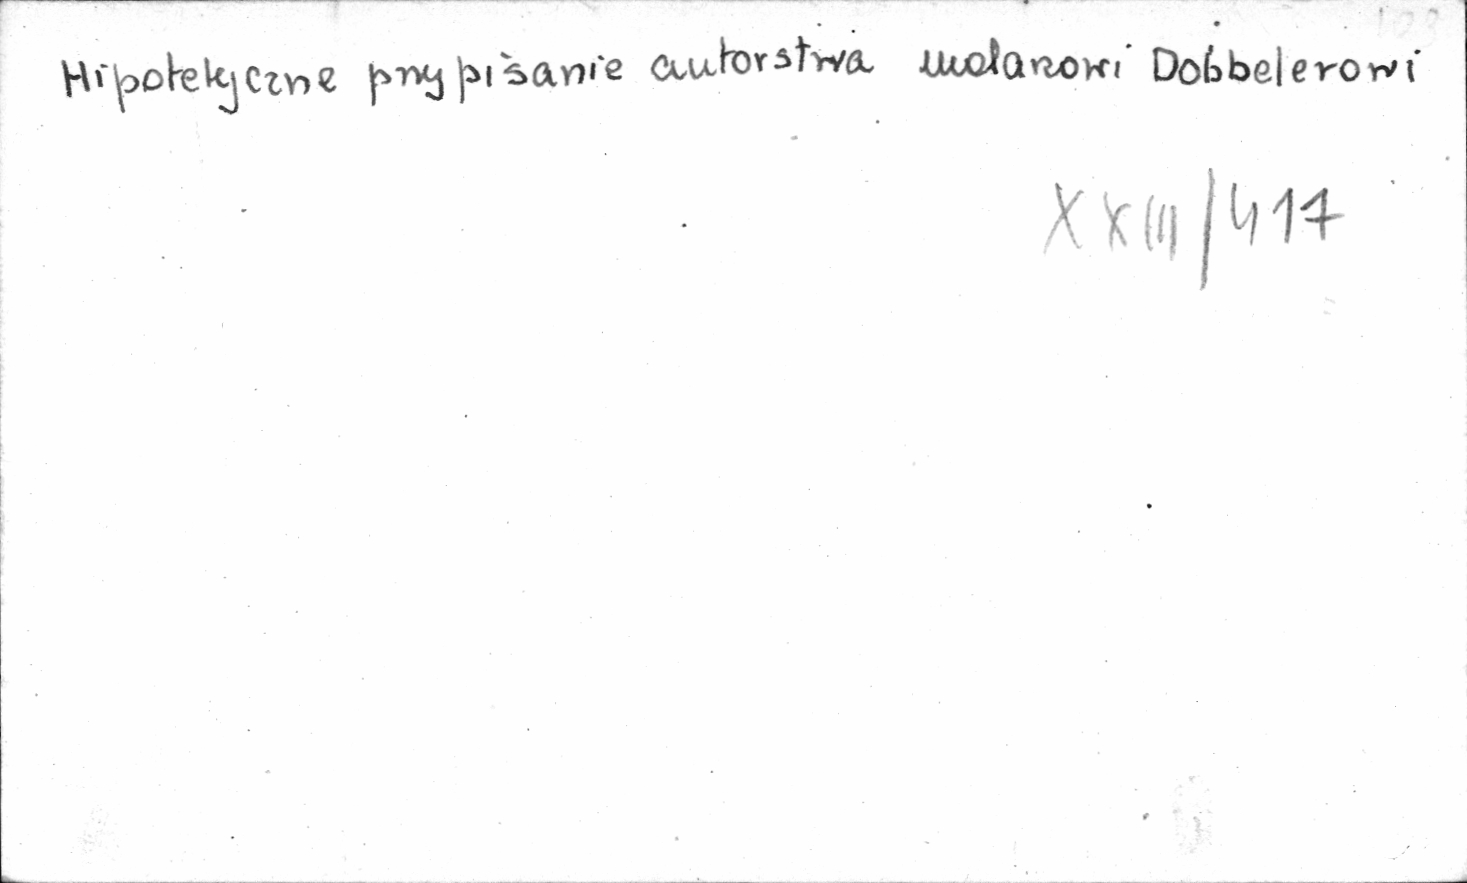 Hipotetyczne przypisanie autorstwa malarzowi Dobbelerowi
XXIII/417